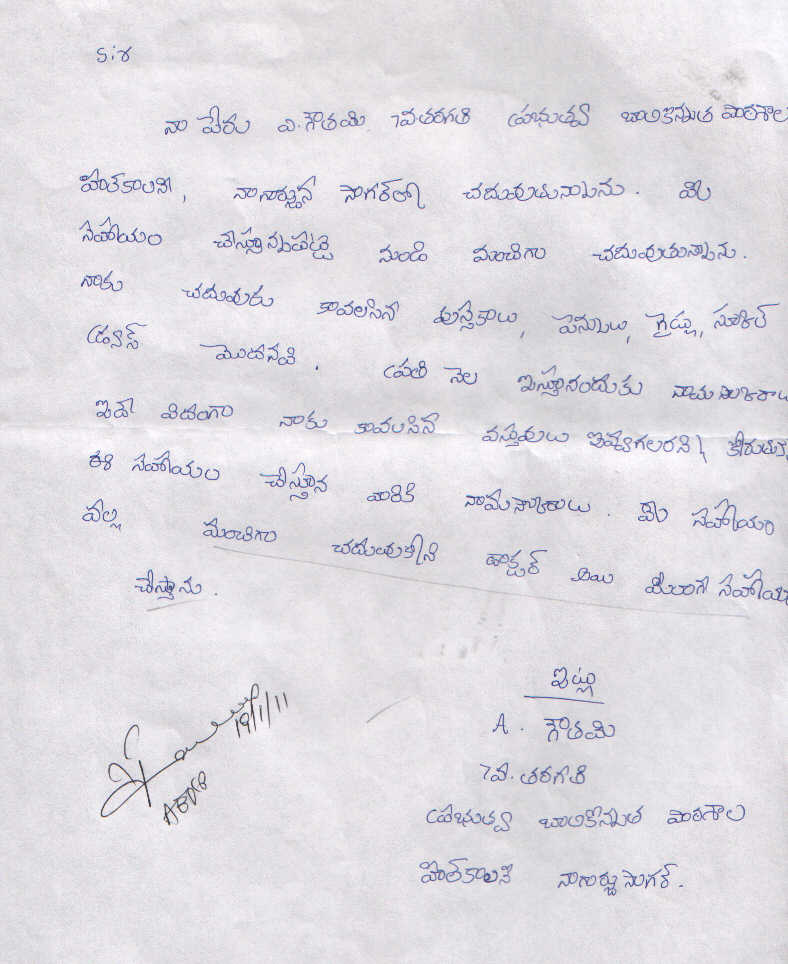 Sir
నా పేరు ఎ.గౌతమి. 7వ తరగతి ప్రభుత్వ బాలికోన్నత పాఠశాల
హిల్‌కాలని, నాగార్జున సాగర్‌లో చదువుతున్నాను. మీరు
సహాయం చేస్తూన్నప్పటి నుండి మంచిగా చదువుతున్నాను.
నాకు చదువుకు కావలసిన పుస్తకాలు, పెన్నులు, స్కూల్
డ్రస్స్ మొదనవి. ప్రతి నెల ఇస్తూనందుకు
ఇదే విదంగా నాకు కావలసిన వస్తువులు ఇవ్వగలరని కోరుతు
ఈ సహాయం చేస్తూన వారికి నామస్కారాలు. మీ సహాయం
వల్ల మంచిగా చదువుకొని డాక్టర్ అయి మీలాంగే సహాయం
చేస్తాను.
ఇట్లు
A. గౌతమి
7వ. తరగతి
ప్రభుత్వ బాలికోన్నత పాఠశాల
హిల్‌కాలని నాగార్జుసాగర్.
19/1/11